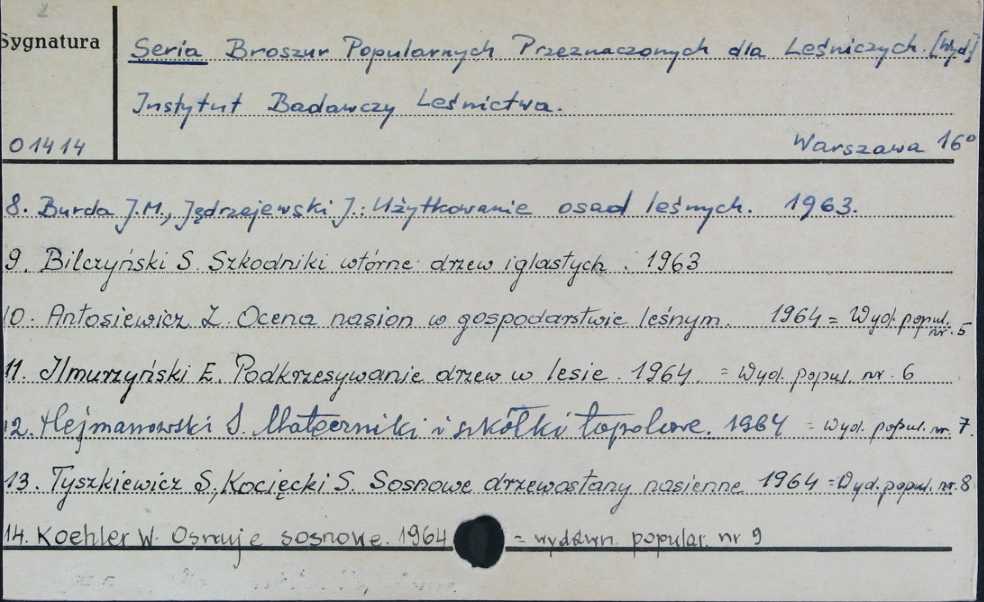 Sygnatura
Seria Broszur Popularnych Przeznaczonych dla Leśniczych. [Wyd]
Instytut Badawczy Leśnictwa.
01414
Warszawa 16°
8. Burda J.M., Jędrzejewski J.: Użytkowanie osad leśnych. 1963.
9. Bilczyński S. Szkodniki wtórne drzew iglastych. 1963
10. Antosiewicz Z. Ocena nasion w gospodarstwie leśnym. 1964 = Wyd. popul. nr. 5
11. Ilmurzyński E. Podkrzesywanie drzew w lesie. 1964. = Wyd. popul. nr. 6
12. Hejmanowski S. Mateczniki i szkółki topolowe. 1964 = Wyd. popul. nr. 7.
13. Tyszkiewicz S., Kocięcki S. Sosnowe drzewostany nasienne 1964 = Wyd. popul. nr. 8
14. Koehler W. Osnuje sosnowe. 1964 = wydawn. popular. nr 9